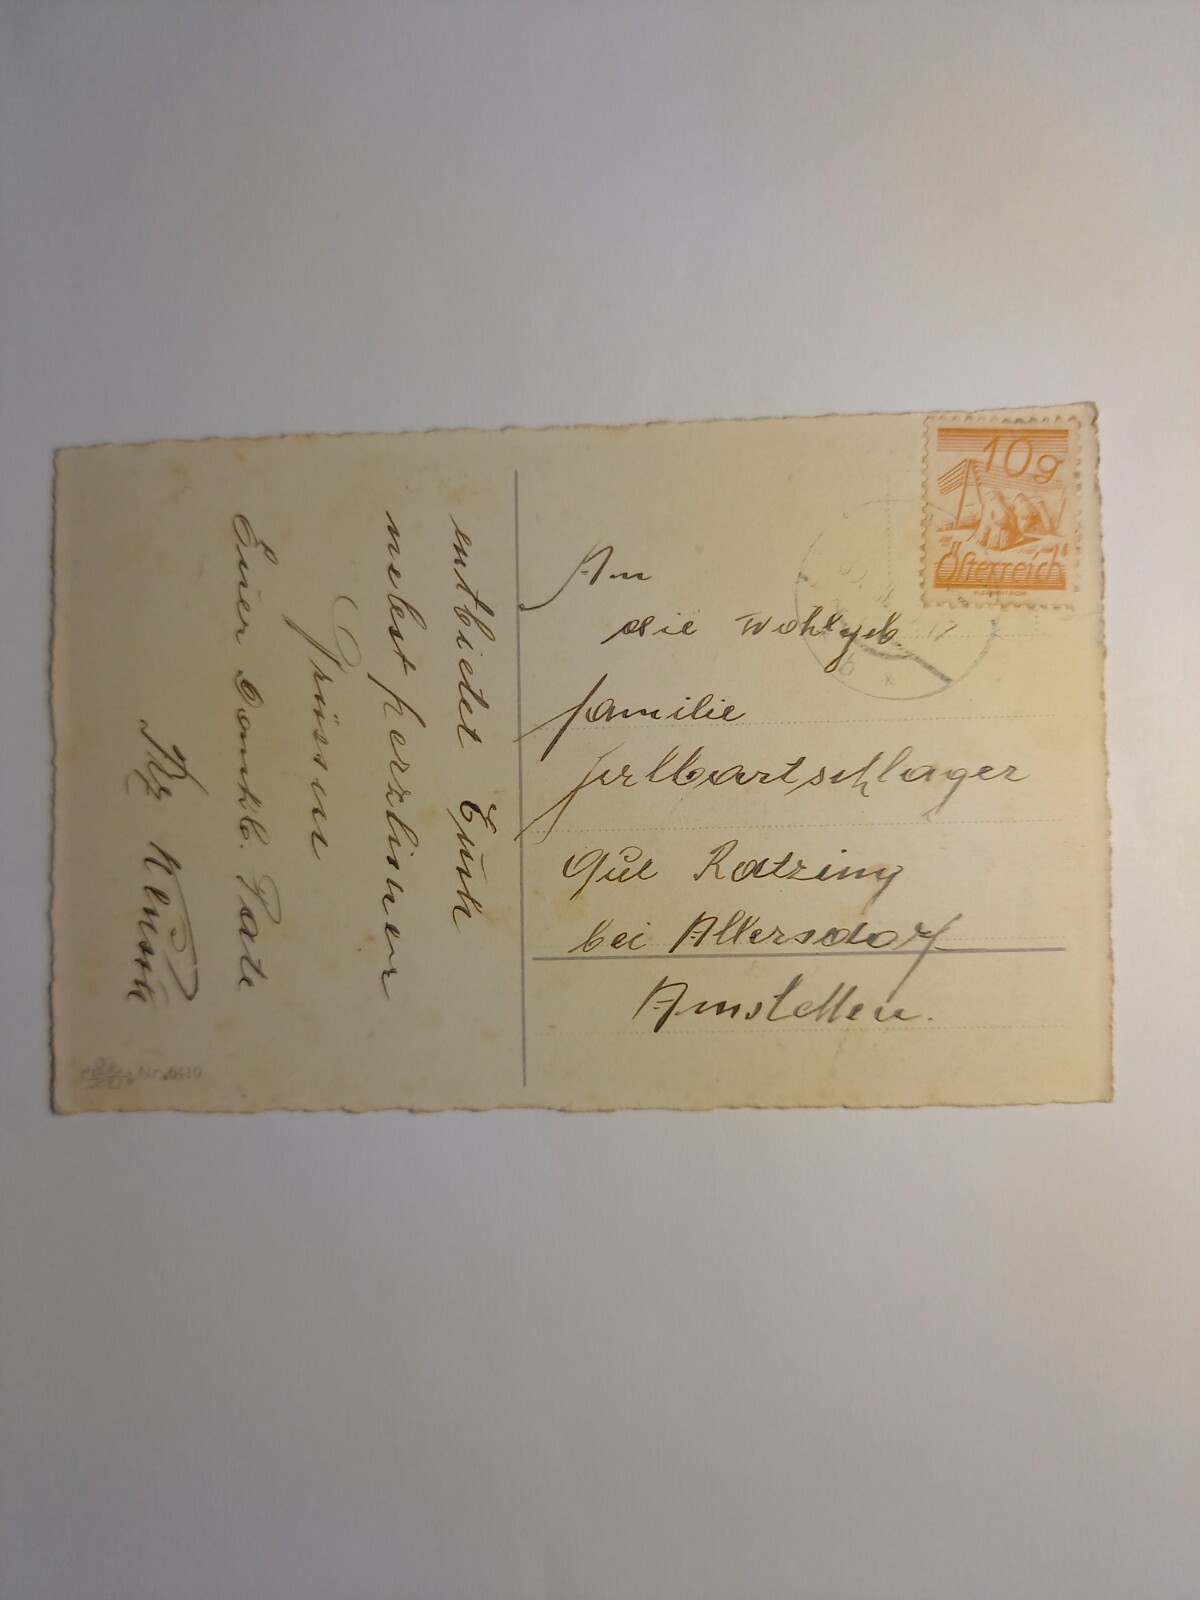 entbietet Euch
nebst herzlichen
Grüssen
Euer dankb. Pate
10g
Österreich
An
die Wohlgeb.
Familie
gut Ratzing
bei Allersdorf
Amstetten.
Nr. 6419